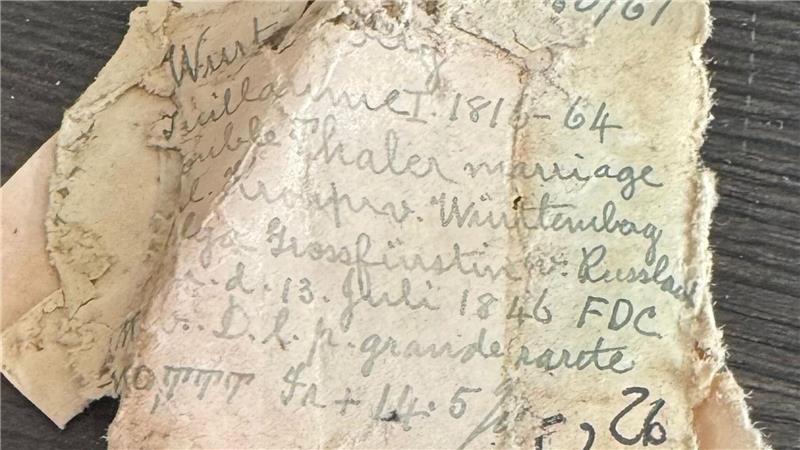 0/61
Wurt
Guillaume I. 1816-64
ouble Thaler marriage
Kronprv. Würtembag
lga Grossfürstin v. Russland
d. 13. Juli 1846 FDC
v. D. l. p. grande rarete
Fr + 14.5 %
26